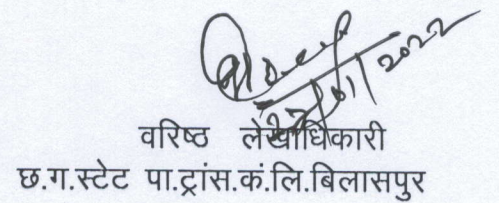 27/01/2022
वरिष्ठ लेखाधिकारी
छ.ग.स्टेट पा.ट्रांस.कं.लि.बिलासपुर